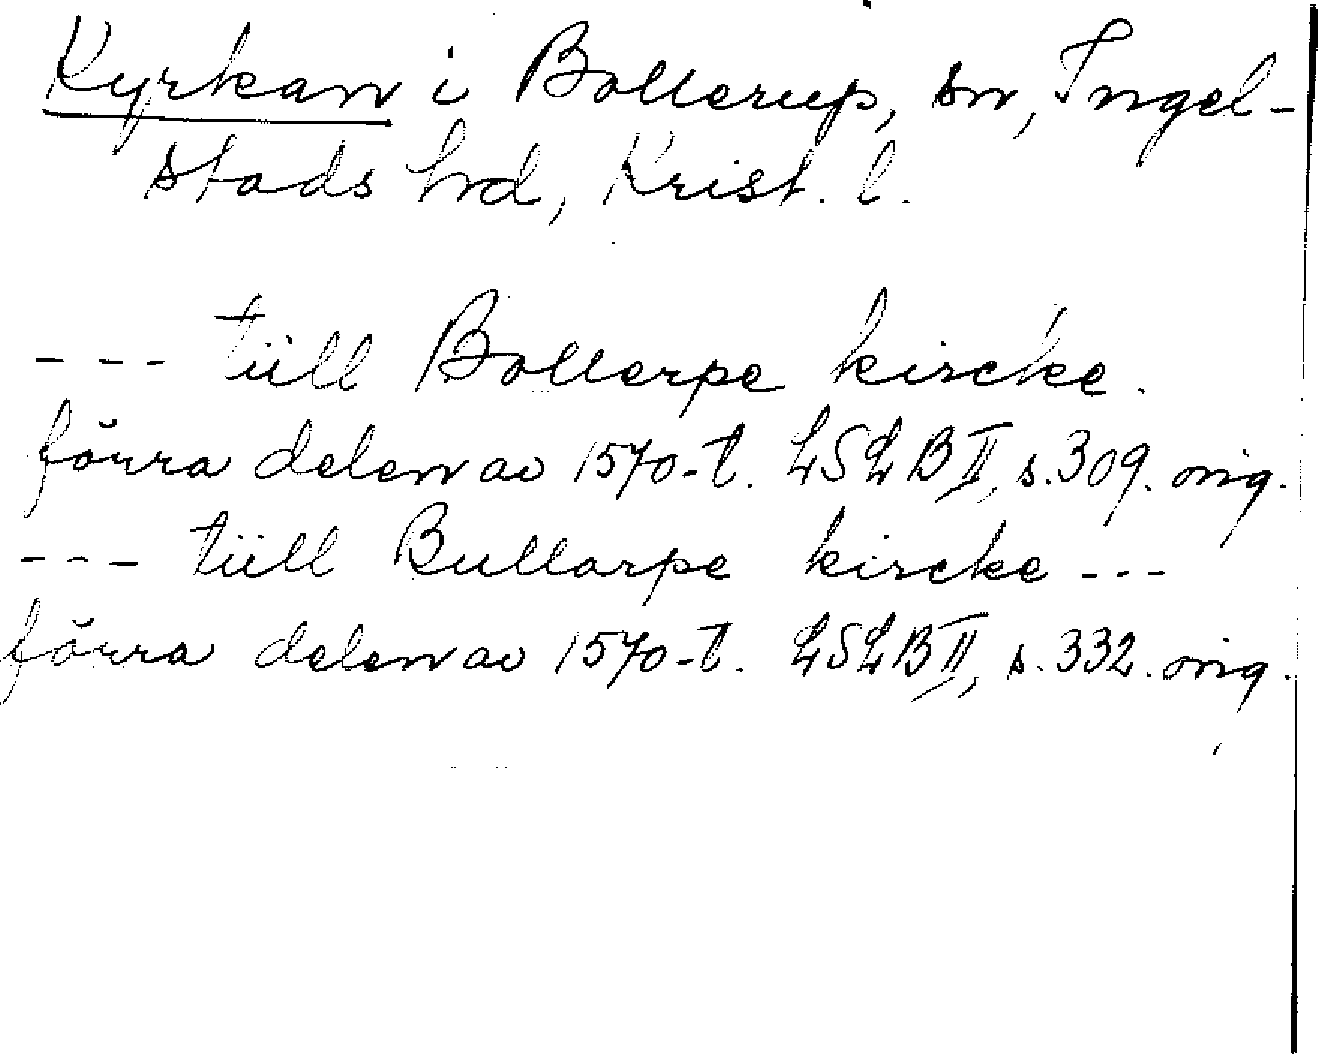 Kyrkan i Bollerup, sn, Ingel-
stads hd, Krist. l.
--- tüll Bollerpe kircke.
förra delen av 1570-t. LSLB II, s. 309. orig.
--- tüll Bullarpe kircke ---
förra delen av 1570-t. LSLB II, s. 332. orig.